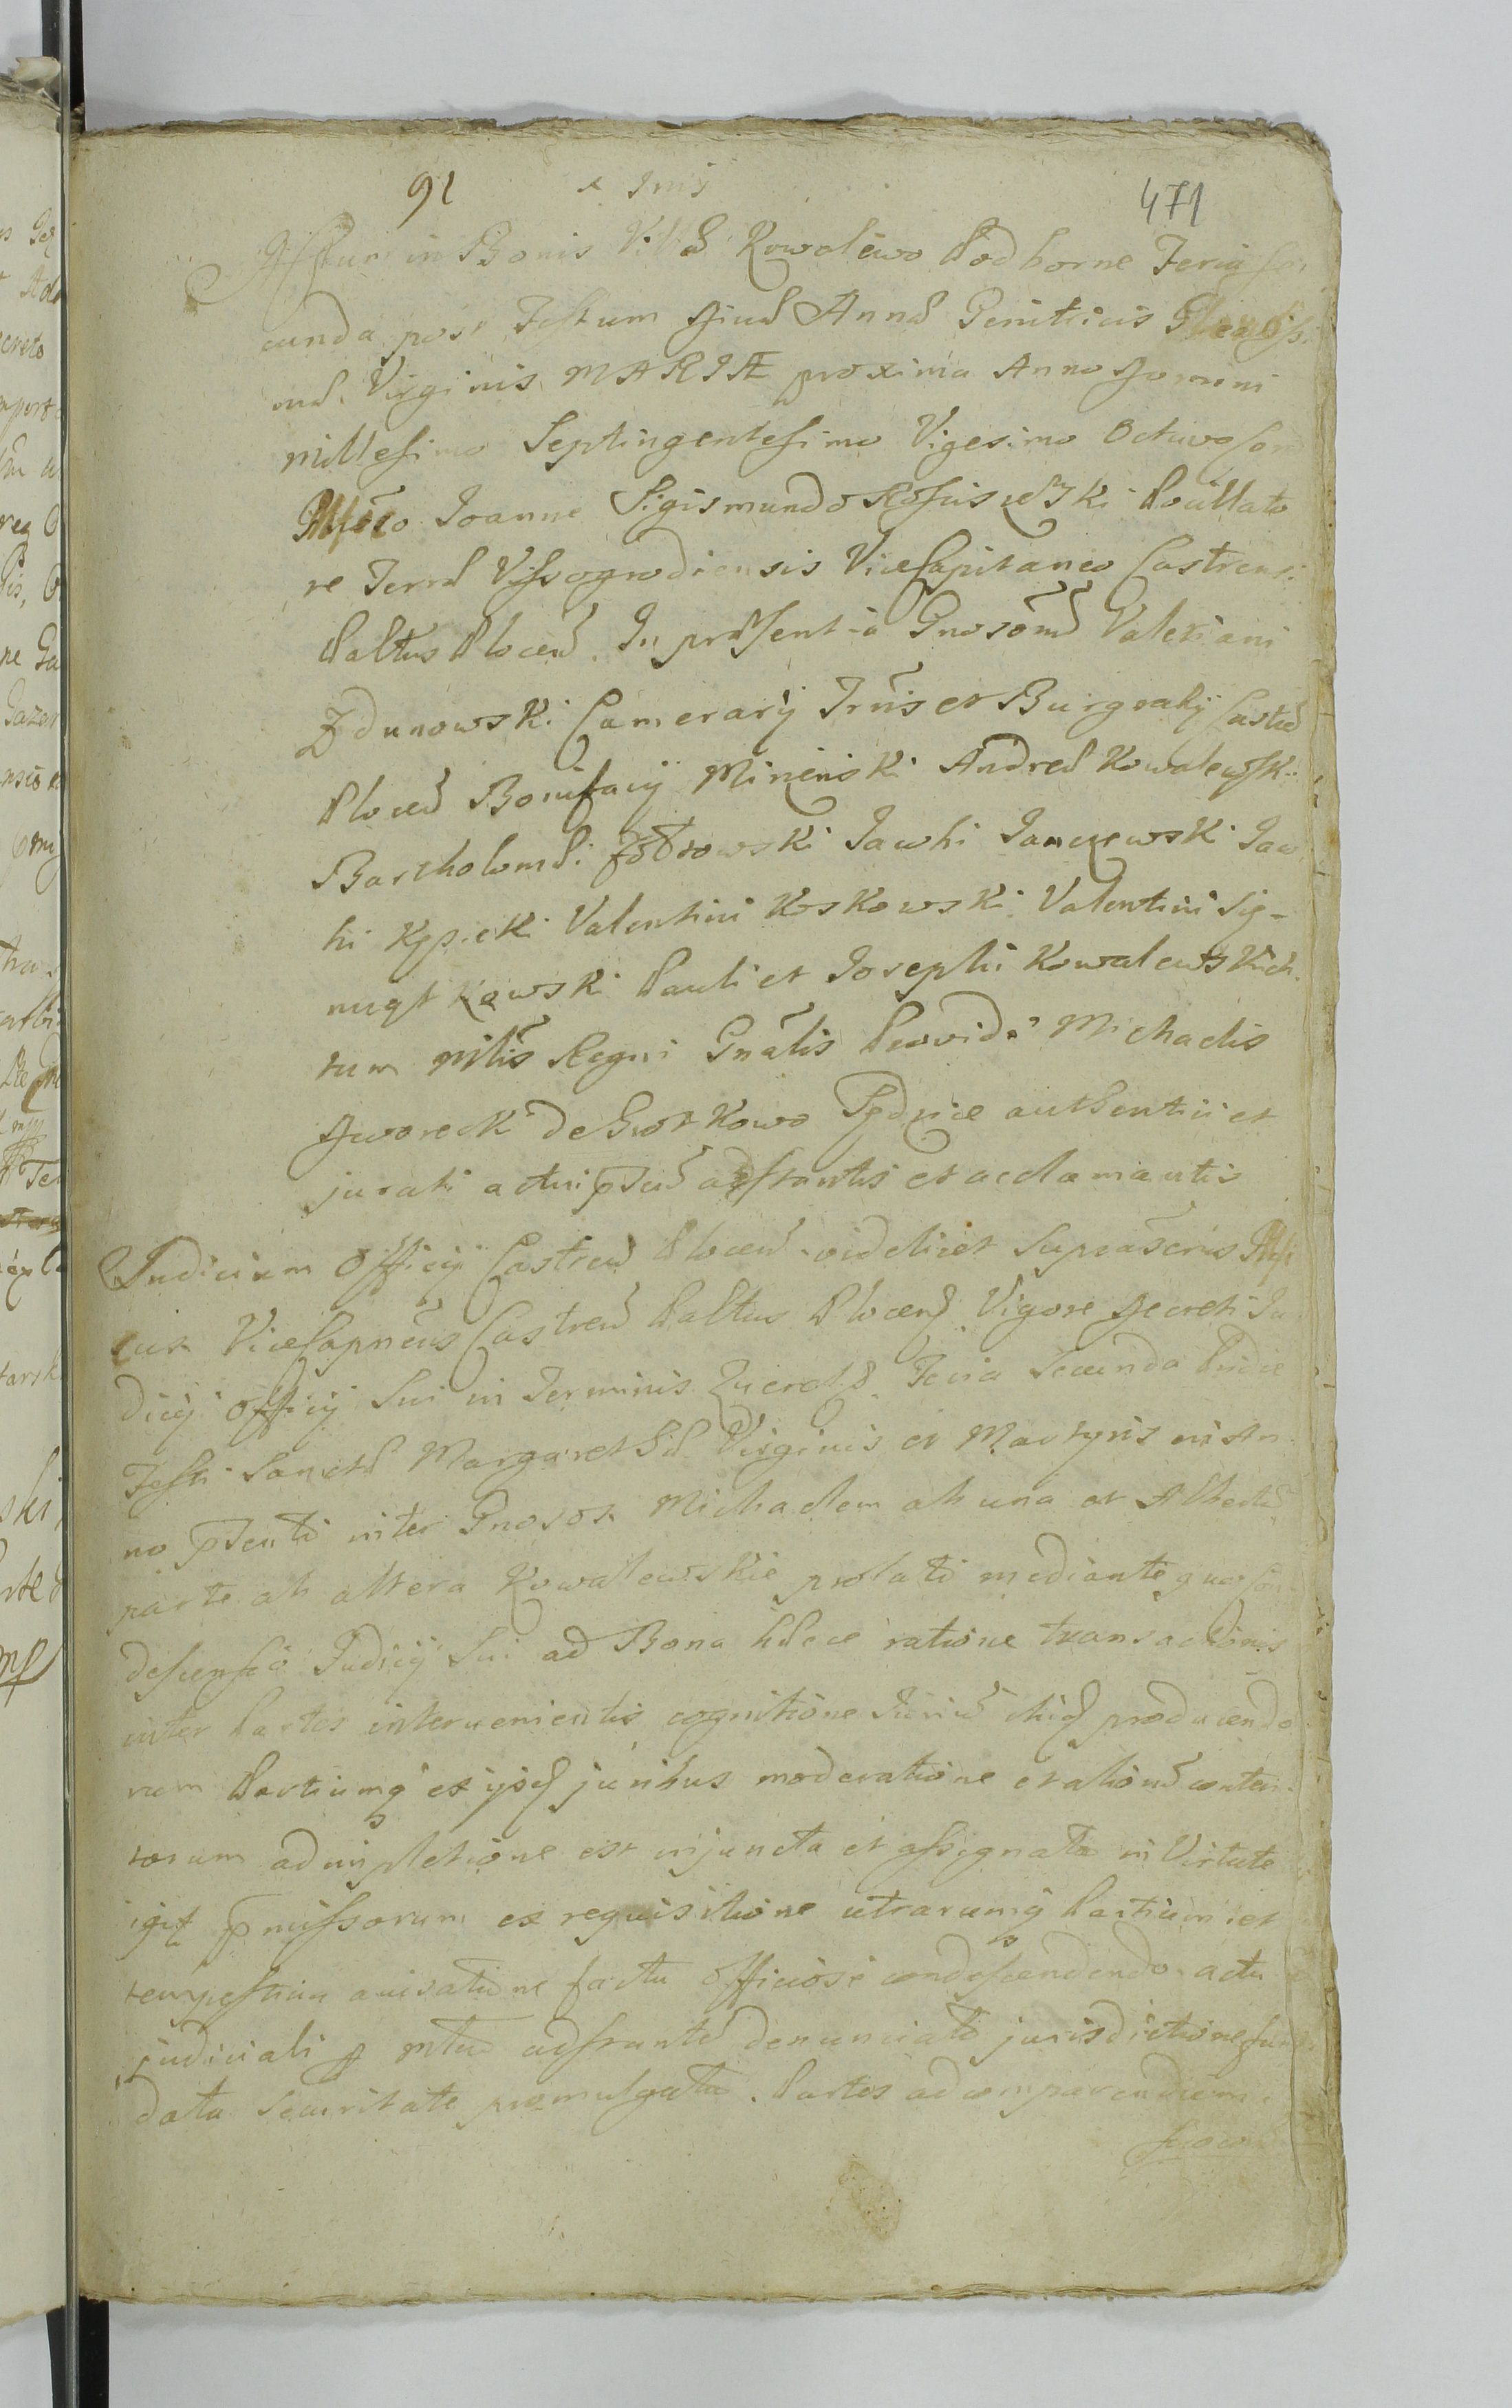 91 471
Actum in Bonis Villæ Kowalewo Podborne Feria se,
cunda post Festum Divæ Annæ Genitricis Gloriosissi,
mæ Virginis MARIÆ proxima Anno Domini
millesimo Septingentesimo Vigesimo Octavo Coram
Joanne Sigismundo Kosciszewski Pocillato
re Terræ Vissogrodiensis ViceCapitaneo Castrensi
Paltus Plocen. In præsentia Gnosorum Valeriani
Zdunowski Camerarij Trris et Burgrabij Castren
Plocen Bonifacij Minenski Andreæ Kowalewski
Bartholomæi Jacobi Janczewski Jaco
bi Kęsicki Valentini Koskowski Valentini Sig-
Pauli et Josephi Kowalewskich
tum Mtlis Regni Gnalis Providi Michaelis
Dworecki de Gwotkowo authentici et
jurati actui pnti adstantis et acclamantis
Judicium Officij Castren Plocen videlicet Suprascrius
cus ViceCapneus Castren Paltus Plocen Vigore Decreti Ju
dicij Officij Sui in Terminis Querelæ Feria Secunda Pridie
Festi Sanctæ Margarethæ Virginis et Martyris in An
no psenti inter Gnosos Michaelem ab una et Albertum
parte ab altera Kowalewskie prolati mediante quo Con
descensio Judicij Sui ad Bona hæcce ratione transactionis
inter Partes intervenientis cognitione Jurium ibid producendo
rum Partiumq ex ijsd juribus moderatione et aliorum conten
torum adimpletione est injuncta et assignata in Virtute
igit pmissorum ex requisitione utrarumq Partium et
tempestiva avisatione facta Officiose condescendendo actu
judiciali p mtlem adstantem denunciato jurisdictione fun
data securitate promulgata. Partes ad comparendum